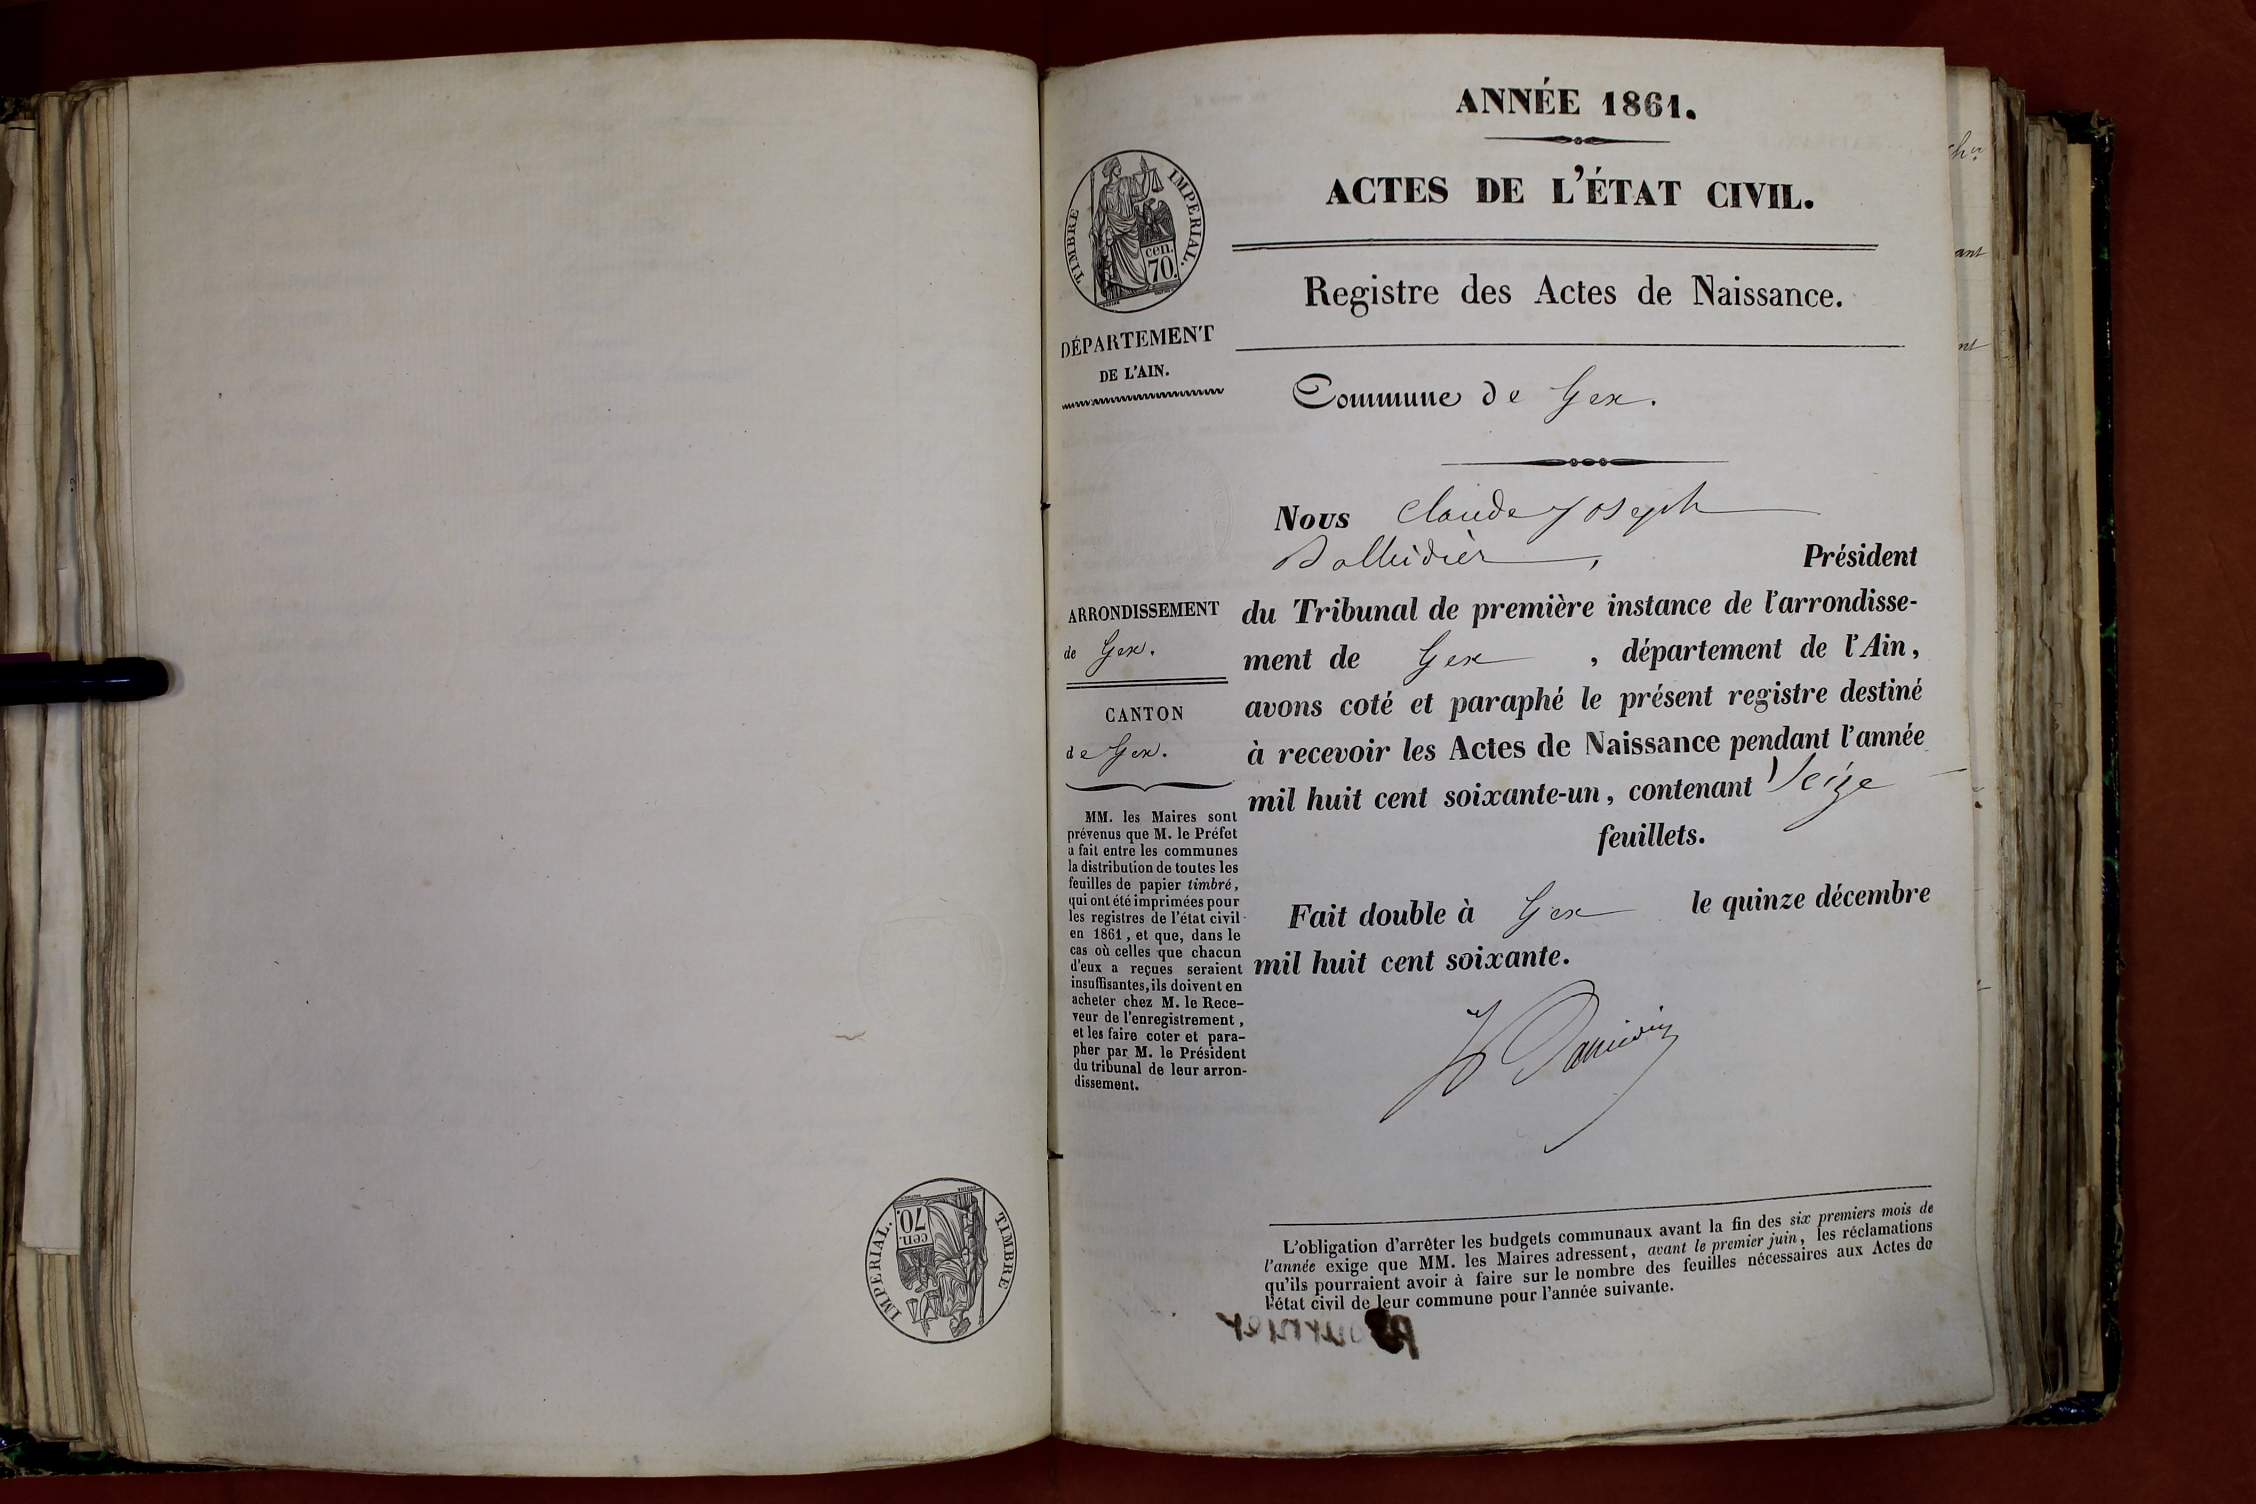 ANNÉE 1861.
ACTES DE L'ÉTAT CIVIL.
Registre des Actes de Naissance.
TIMBRE IMPÉRIAL.
cen.
70.
DÉPARTEMENT
DE L'AIN.
Commune de Gex.
Nous Claude Joseph
Président
du Tribunal de première instance de l'arrondisse-
ment de Gex, département de l'Ain,
avons coté et paraphé le présent registre destiné
à recevoir les Actes de Naissance pendant l'année
mil huit cent soixante-un, contenant Seize
feuillets.
Fait double à Gex le quinze décembre
mil huit cent soixante.
ARRONDISSEMENT
de Gex.
CANTON
de Gex.
MM. les Maires sont
prévenus que M. le Préfet
a fait entre les communes
la distribution de toutes les
feuilles de papier timbré,
qui ont été imprimées pour
les registres de l'état civil
en 1861, et que, dans le
cas où celles que chacun
d'eux a reçues seraient
insuffisantes, ils doivent en
acheter chez M. le Rece-
veur de l'enregistrement,
et les faire coter et para-
pher par M. le Président
du tribunal de leur arron-
dissement.
L'obligation d'arrêter les budgets communaux avant la fin des six premiers mois de
l'année exige que MM. les Maires adressent, avant le premier juin, les réclamations
qu'ils pourraient avoir à faire sur le nombre des feuilles nécessaires aux Actes de
l'état civil de leur commune pour l'année suivante.
TIMBRE IMPÉRIAL.
cen.
70.